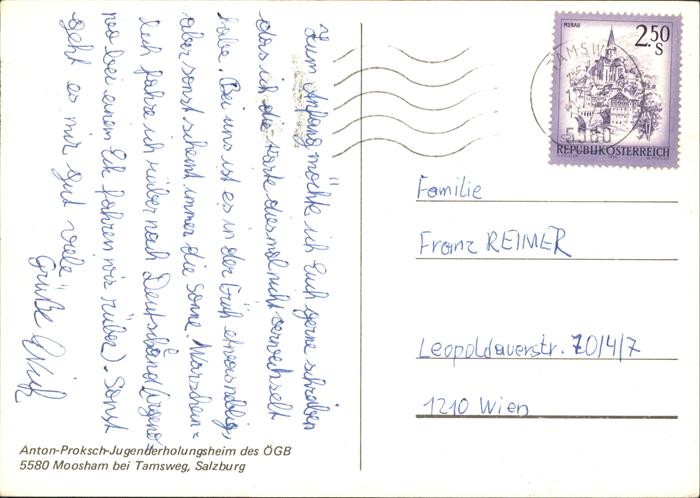 Zum Anfang möchte ich Euch gerne schreiben
das ich die Karte diesmal nicht verwechselt
habe. Bei uns ist es in der Früh etwas neblig,
aber sonst scheint immer die Sonne. Warschein=
lich fahre ich rüber nach Deutschland (irgend=
wo bei einem Eck fahren wir rüber). Sonst
geht es mir gut viele
Grüße
MURAU
2.50
S
TAMSW
5580
REPUBLIK ÖSTERREICH
Familie
Franz REIMER
Leopoldauerstr. 70/4/7
1210 Wien
Anton-Proksch-Jugenderholungsheim des ÖGB
5580 Moosham bei Tamsweg, Salzburg